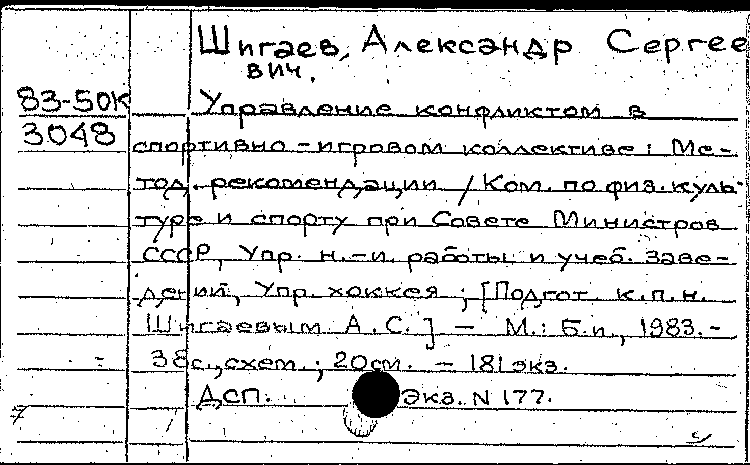 Шигаев, Александр Сергее
вич.
83-50К Управление конфликтом в
3048 спортивно-игровом коллективе: Ме-
тод. рекомендации / Ком. по физ. куль-
туре и спорту при Совете Министров
СССР, Упр. н.-и. работы и учеб. заве-
дений, Упр. хоккея; [Подгот. к.п.н.
Шигаевым А.С.] — М.: Б.и., 1983.-
38с., схем.; 20см. — 181 экз.
ДСП. Экз. N 177.